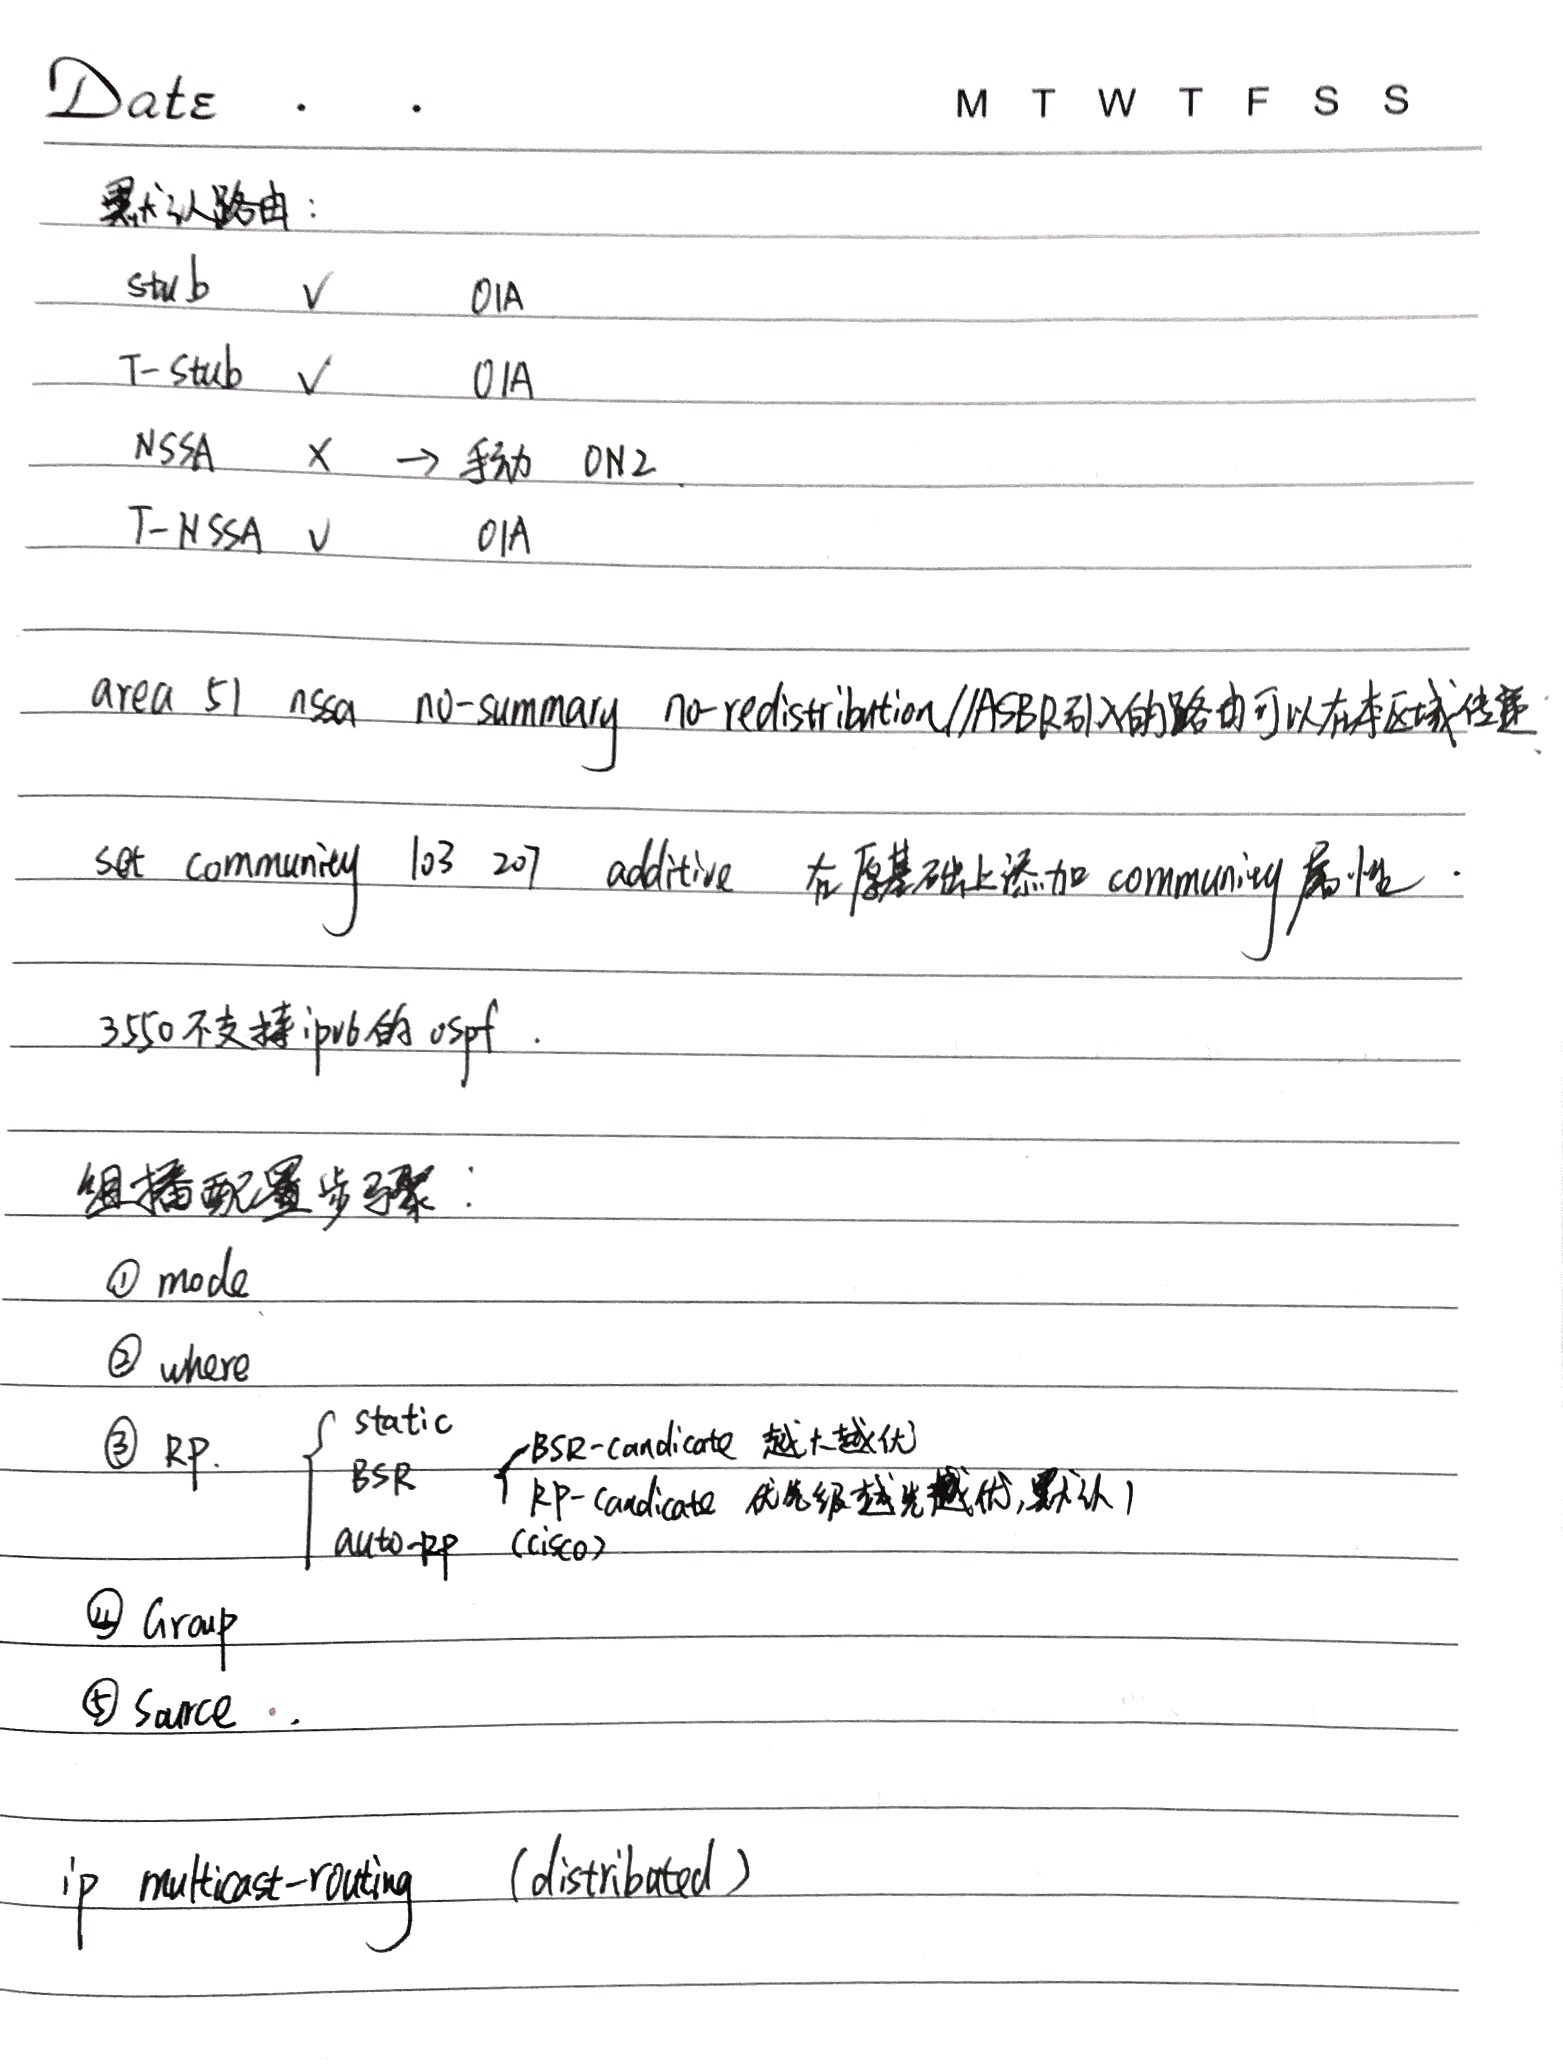 Date . . M T W T F S S
默认路由:
stub √ OIA
T-stub √ OIA
NSSA × → 手动 ON2
T-NSSA √ OIA
area 51 nssa no-summary no-redistribution//ASBR引入的路由可以在本区域传递.
set community 103 207 additive 在原基础上添加 community 属性.
3550不支持ipv6的ospf.
组播配置步骤:
① mode
② where
③ RP. { static
BSR { BSR-candicate 越大越优
RP-candicate 优先级越先越优,默认1
auto-RP (cisco)
④ Group
⑤ Source ..
ip multicast-routing (distributed)